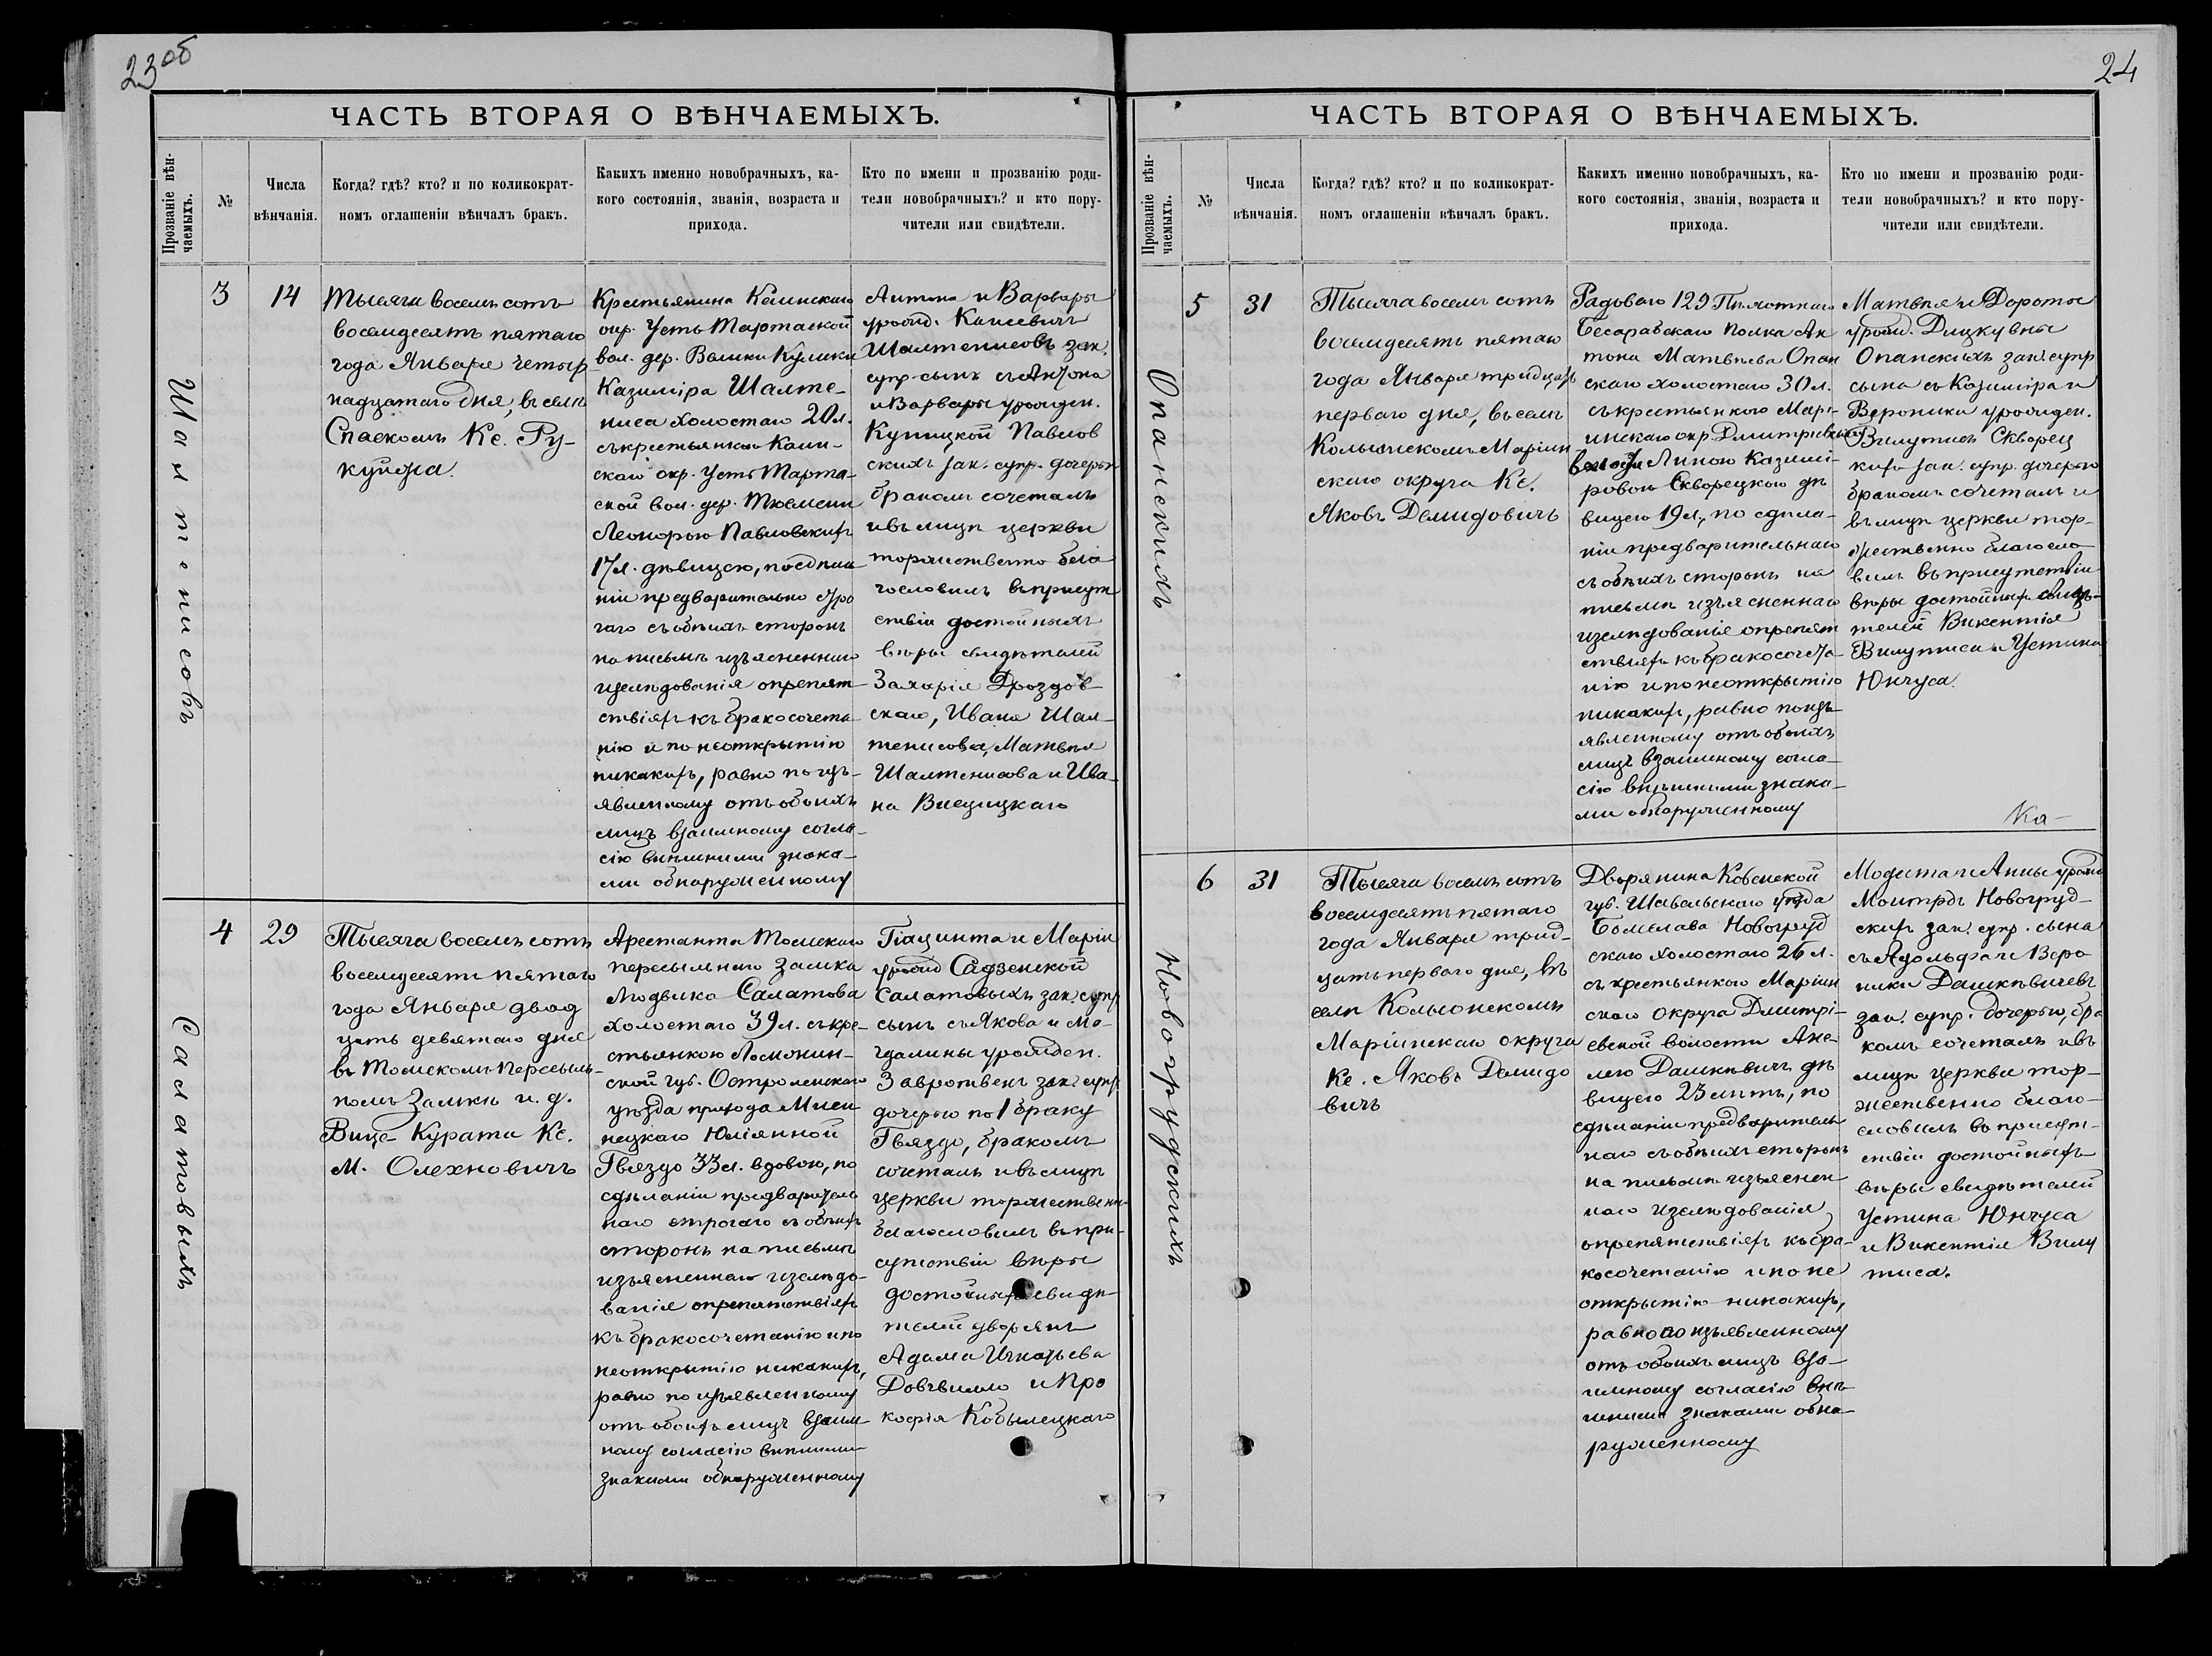 23 об
ЧАСТЬ ВТОРАЯ О ВѢНЧАЕМЫХЪ.
Прозваніе вѣн-
чаемыхъ.
№
Числа
вѣнчанія.
Когда? гдѣ? кто? и по коликократ-
номъ оглашеніи вѣнчалъ бракъ.
Какихъ именно новобрачныхъ, ка-
кого состоянія, званія, возраста и
прихода.
Кто по имени и прозванію роди-
тели новобрачныхъ? и кто пору-
чители или свидѣтели.
Шалтенисовъ
3
14
Тысяча восемь сотъ
восемдесятъ пятаго
года Января четыр
надцатаго дня, въ селѣ
Спаскомъ Кс. Ру-
куйжа.
Крестьянина Каинскаго
окр. Усть Тартаской
вол. дер. Велики Кулики
Казиміра Шалте-
ниса холостаго 20 л.
съ крестьянкой Каин-
скаго окр. Усть Тарта-
ской вол. дер. Тюмени
Леонорою Павловскихъ
17 л. дѣвицею, по сдѣла
ніи предварительно стро
гаго съ обѣихъ сторонъ
на письмѣ изъясненнаго
изслѣдованія о препят-
ствіяхъ къ бракосочета-
нію и по неоткрытію
никакихъ, равно по изъ-
явленному отъ обоихъ
лицъ взаимному согла-
сію внѣшними знака-
ми обнаруженному
Антона и Варвары
урожд.
Шалтенисовъ зак.
супр. сынъ съ Антона
и Варвары урожден.
Купицкой Павлов
скихъ зак. супр. дочерью
бракомъ сочеталъ
и въ лицѣ церкви
торжественно бла
гословилъ въ присут
ствіи достойныхъ
вѣры свидѣтелей
Захарія Дроздов-
скаго, Ивана Шал-
тенисова, Матвѣя
Шалтенисова и Ива-
на
Салатовыхъ
4
29
Тысяча восемь сотъ
восемдесятъ пятаго
года Января двад
цать девятаго дня
въ Томскомъ Пересыль-
номъ Замкѣ и. д.
Вице-Курата Кс.
М. Олехновичъ
Арестанта Томскаго
пересыльнаго замка
Людвика Салатова
холостаго 39 л. съ кре-
стьянкою Ломжин-
ской губ. Остроленскаго
уѣзда прихода
Юліянной
Гвяздо 33 л. вдовою, по
сдѣланіи предваритель
наго строгаго съ обѣихъ
сторонъ на письмѣ
изъясненнаго изслѣдо-
ванія о препятствіяхъ
къ бракосочетанію и по
неоткрытію никакихъ,
равно по изъявленному
отъ обоихъ лицъ взаим-
ному согласію внѣшними
знаками обнаруженному
Гіацинта и Маріи
урожд Садзенской
Салатовыхъ зак. супр
сынъ съ Якова и Ма-
гдалины урожден.
зак. супр
дочерью по 1 браку
Гвяздо, бракомъ
сочеталъ и въ лицѣ
церкви торжественно
благословилъ въ при-
сутствіи вѣры
достойныхъ свидѣ-
телей дворянъ
Адама Игнатьева
Довгвилло и Про
кофія Кобылецкаго
24
ЧАСТЬ ВТОРАЯ О ВѢНЧАЕМЫХЪ.
Прозваніе вѣн-
чаемыхъ.
№
Числа
вѣнчанія.
Когда? гдѣ? кто? и по коликократ-
номъ оглашеніи вѣнчалъ бракъ.
Какихъ именно новобрачныхъ, ка-
кого состоянія, званія, возраста и
прихода.
Кто по имени и прозванію роди-
тели новобрачныхъ? и кто пору-
чители или свидѣтели.
Опанскихъ
5
31
Тысяча восемь сотъ
восемдесятъ пятаго
года Января тридцать
перваго дня, въ селѣ
Кольонскомъ Маріин
скаго округа Кс.
Яковъ Демидовичъ
Рядоваго 129 Пѣхотнаго
Бесарабскаго Полка Ан
тона Матвѣева Опан
скаго холостаго 30 л.
съ крестьянкою Марі-
инскаго окр. Дмитріевской
волости Анною Казимі-
ровою Скворецкою дѣ
вицею 19 л, по сдѣла-
ніи предварительнаго
съ обѣихъ сторонъ на
письмѣ изъясненнаго
изслѣдованія о препят
ствіяхъ къ бракосочета-
нію и по неоткрытію
никакихъ, равно по изъ-
явленному отъ обоихъ
лицъ взаимному согла-
сію внѣшними знака-
ми обнаруженному
Матвѣя и Дороты
урожд. Дицкувны
Опанскихъ зак. супр
сына съ Казиміра и
Вероники урожден.
Вилутисъ Скворец
кихъ зак. супр. дочерью
бракомъ сочеталъ и
въ лицѣ церкви тор-
жественно благосло-
вилъ въ присутствіи
вѣры достойныхъ свидѣ-
телей Викентія
Вилутиса и Устина
Юнчуса.
Ка-
Новогрудскихъ
6
31
Тысяча восемь сотъ
восемдесятъ пятаго
года Января трид-
цать перваго дня, въ
селѣ Кольонскомъ
Маріинскаго округа
Кс. Яковъ Демидо
вичъ
Дворянина Ковенской
губ. Шавельскаго уѣзда
Болеслава Новогруд
скаго холостаго 26 л.
съ крестьянкою Маріин
скаго округа Дмитрі-
евской волости Ане-
лею Дашкѣвичъ дѣ
вицею 23 лѣтъ, по
сдѣланіи предваритель
наго съ обѣихъ сторонъ
на письмѣ изъяснен
наго изслѣдованія
о препятствіяхъ къ бра-
косочетанію и по не
открытію никакихъ,
равно по изъявленному
отъ обоихъ лицъ вза-
имному согласію внѣ-
шними знаками обна-
руженному
Модеста и Анны урожд
Новогруд-
скихъ зак. супр. сына
съ Адольфа и Веро
ники Дашкѣвичевъ
зак. супр. дочерью, бра
комъ сочеталъ и въ
лицѣ церкви тор-
жественно благо-
словилъ въ присут-
ствіи достойныхъ
вѣры свидѣтелей
Устина Юнчуса
и Викентія Вилу
тиса.